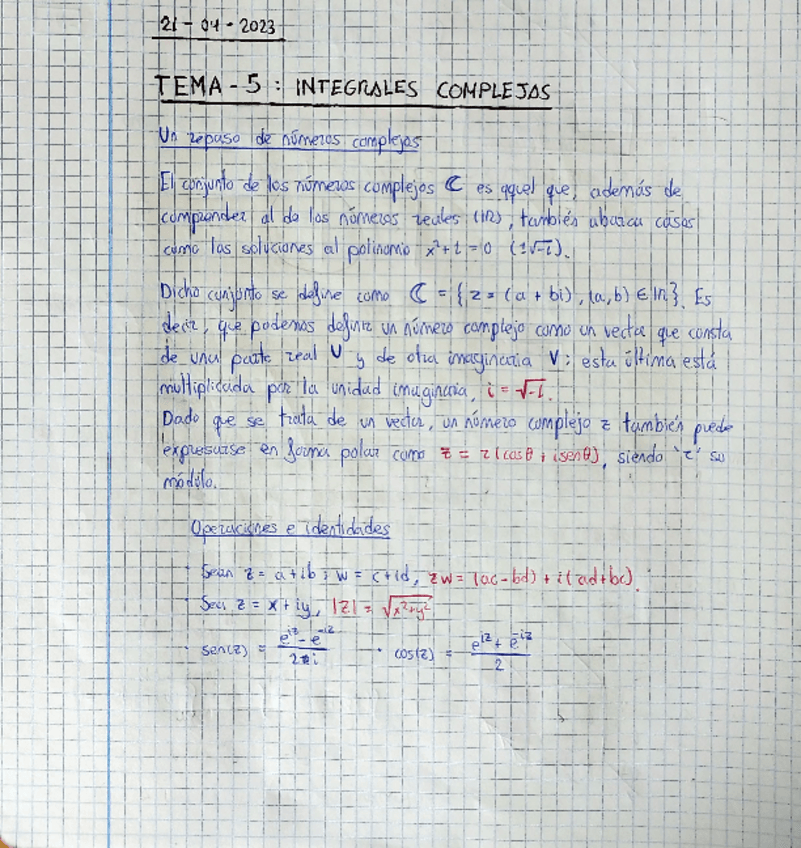 21-04-2023
TEMA-5: INTEGRALES COMPLEJAS
Un repaso de números complejos
El conjunto de los números complejos ℂ es aquel que, además de
comprender al de los números reales (ℝ), también abarca casos
como las soluciones al polinomio x²+1=0 (±√-1).
Dicho conjunto se define como ℂ = {z = (a + bi), (a,b) ∈ ℝ}. Es
decir, que podemos definir un número complejo como un vector que consta
de una parte real U y de otra imaginaria V; esta última está
multiplicada por la unidad imaginaria, i = √-1.
Dado que se trata de un vector, un número complejo z también puede
expresarse en forma polar como z = r(cosθ + isenθ), siendo 'r' su
módulo.
Operaciones e identidades
· Sean z = a+ib; w = c+id, zw = (ac-bd) + i(ad+bc).
· Sea z = x+iy, |z| = √x²+y²
· sen(z) = (e^iz - e^-iz)/2i · cos(z) = (e^iz + e^-iz)/2